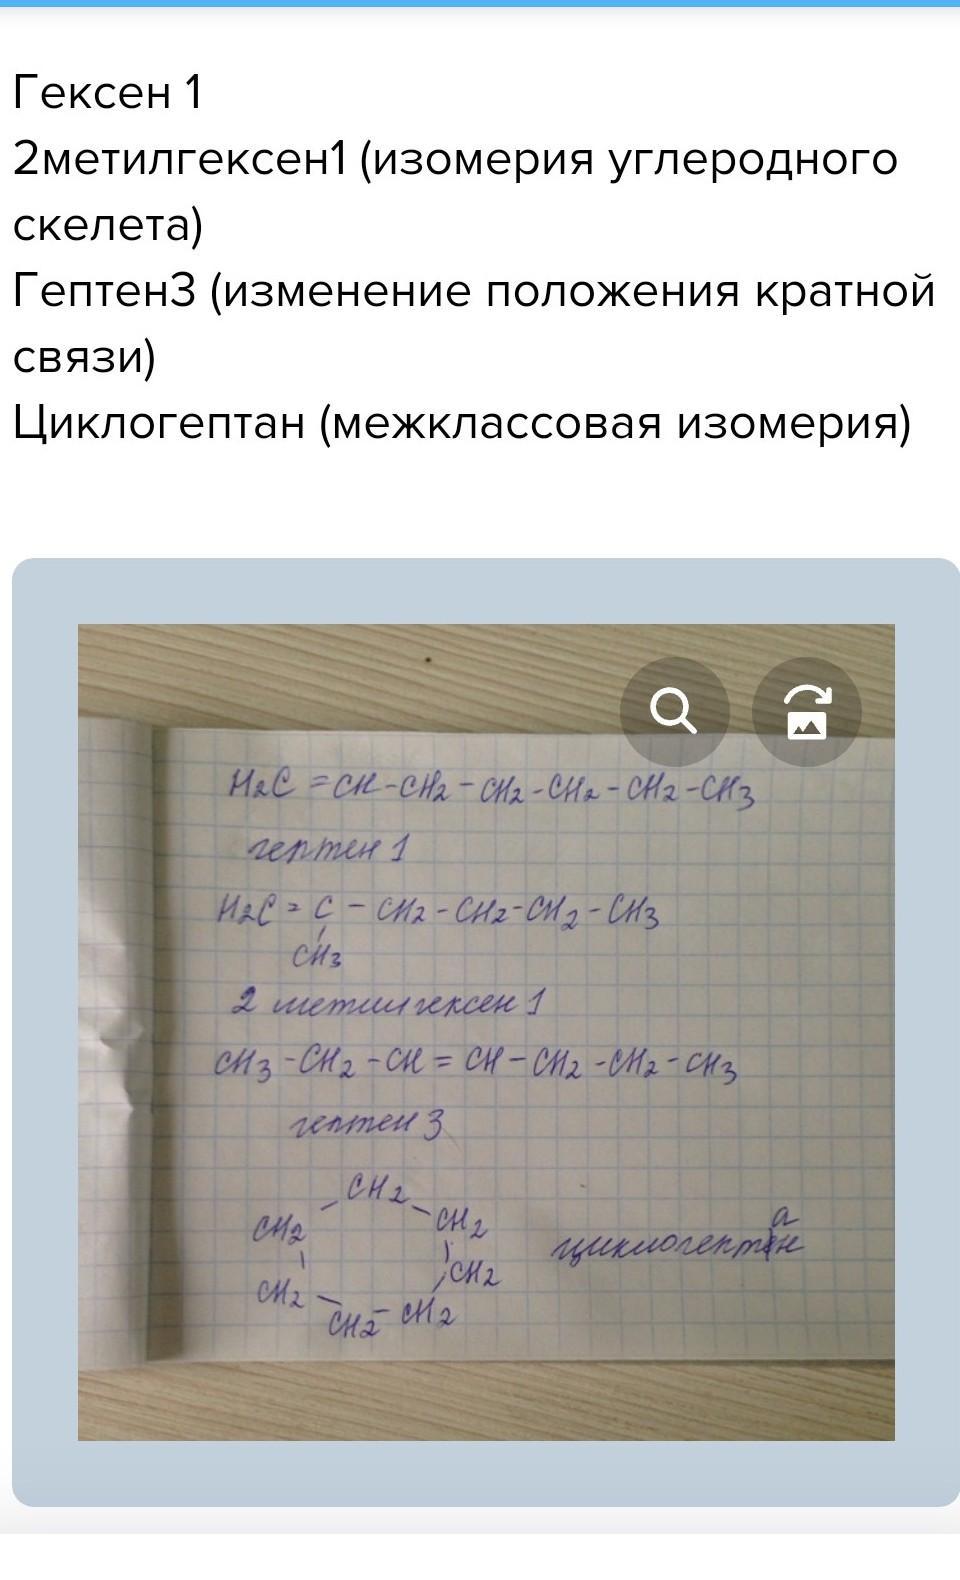 Гексен 1
2метилгексен1 (изомерия углеродного
скелета)
Гептен3 (изменение положения кратной
связи)
Циклогептан (межклассовая изомерия)
H2C = CH - CH2 - CH2 - CH2 - CH2 - CH3
гептен 1
H2C = C - CH2 - CH2 - CH2 - CH3
CH3
2 метилгексен 1
CH3 - CH2 - CH = CH - CH2 - CH2 - CH3
гептен 3
CH2
CH2 CH2
CH2
CH2
CH2 - CH2
циклогептан